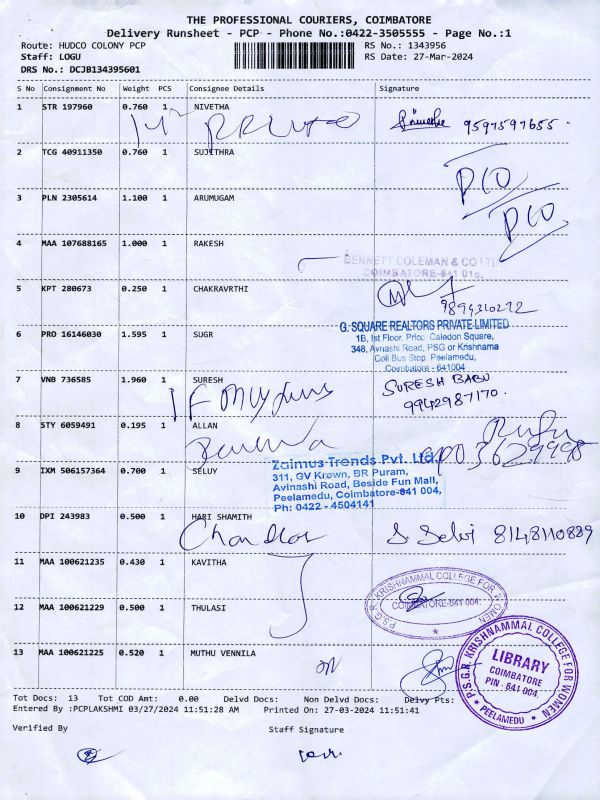 THE PROFESSIONAL COURIERS, COIMBATORE
Delivery Runsheet - PCP - Phone No.:0422-3505555 - Page No.:1
Route: HUDCO COLONY PCP
RS No.: 1343956
Staff: LOGU
RS Date: 27-Mar-2024
DRS No.: DCJB134395601
S No Consignment No Weight PCS Consignee Details Signature
1 STR 197960 0.760 1 NIVETHA
9597597655.
2 TCG 40911350 0.760 1 SUJITHRA
3 PLN 2305614 1.100 1 ARUMUGAM
4 MAA 107688165 1.000 1 RAKESH
BENNETT COLEMAN & CO LTD
COIMBATORE-641 018.
5 KPT 280673 0.250 1 CHAKRAVRTHI
9894310272
G. SQUARE REALTORS PRIVATE LIMITED
6 PRO 16146030 1.595 1 SUGR
1B, Ist Floor, Prioc Caledon Square,
348, Avnashi Road, PSG or Krishnama
Coll Bus Stop, Peelamedu,
Coimbatore - 641004
7 VNB 736585 1.960 1 SURESH
SURESH BABU
99429 87170.
8 STY 6059491 0.195 1 ALLAN
9 IXM 506157364 0.700 1 SELUY
Zaimus Trends Pvt. Ltd.
311, GV Krown, BR Puram,
Avinashi Road, Beside Fun Mall,
Peelamedu, Coimbatore-641 004,
Ph: 0422 - 4504141
10 DPI 243983 0.500 1 HARI SHAMITH
Chandler
S Selvi 8148110889
11 MAA 100621235 0.430 1 KAVITHA
P.S.G.R. KRISHNAMMAL COLLEGE FOR WOMEN
COIMBATORE-641 004.
12 MAA 100621229 0.500 1 THULASI
13 MAA 100621225 0.520 1 MUTHU VENNILA
P.S.G.R. KRISHNAMMAL COLLEGE FOR WOMEN
LIBRARY
COIMBATORE
PIN - 641 004.
PEELAMEDU
Tot Docs: 13 Tot COD Amt: 0.00 Delvd Docs: Non Delvd Docs: Delvy Pts:
Entered By :PCPLAKSHMI 03/27/2024 11:51:28 AM Printed On: 27-03-2024 11:51:41
Verified By
Staff Signature